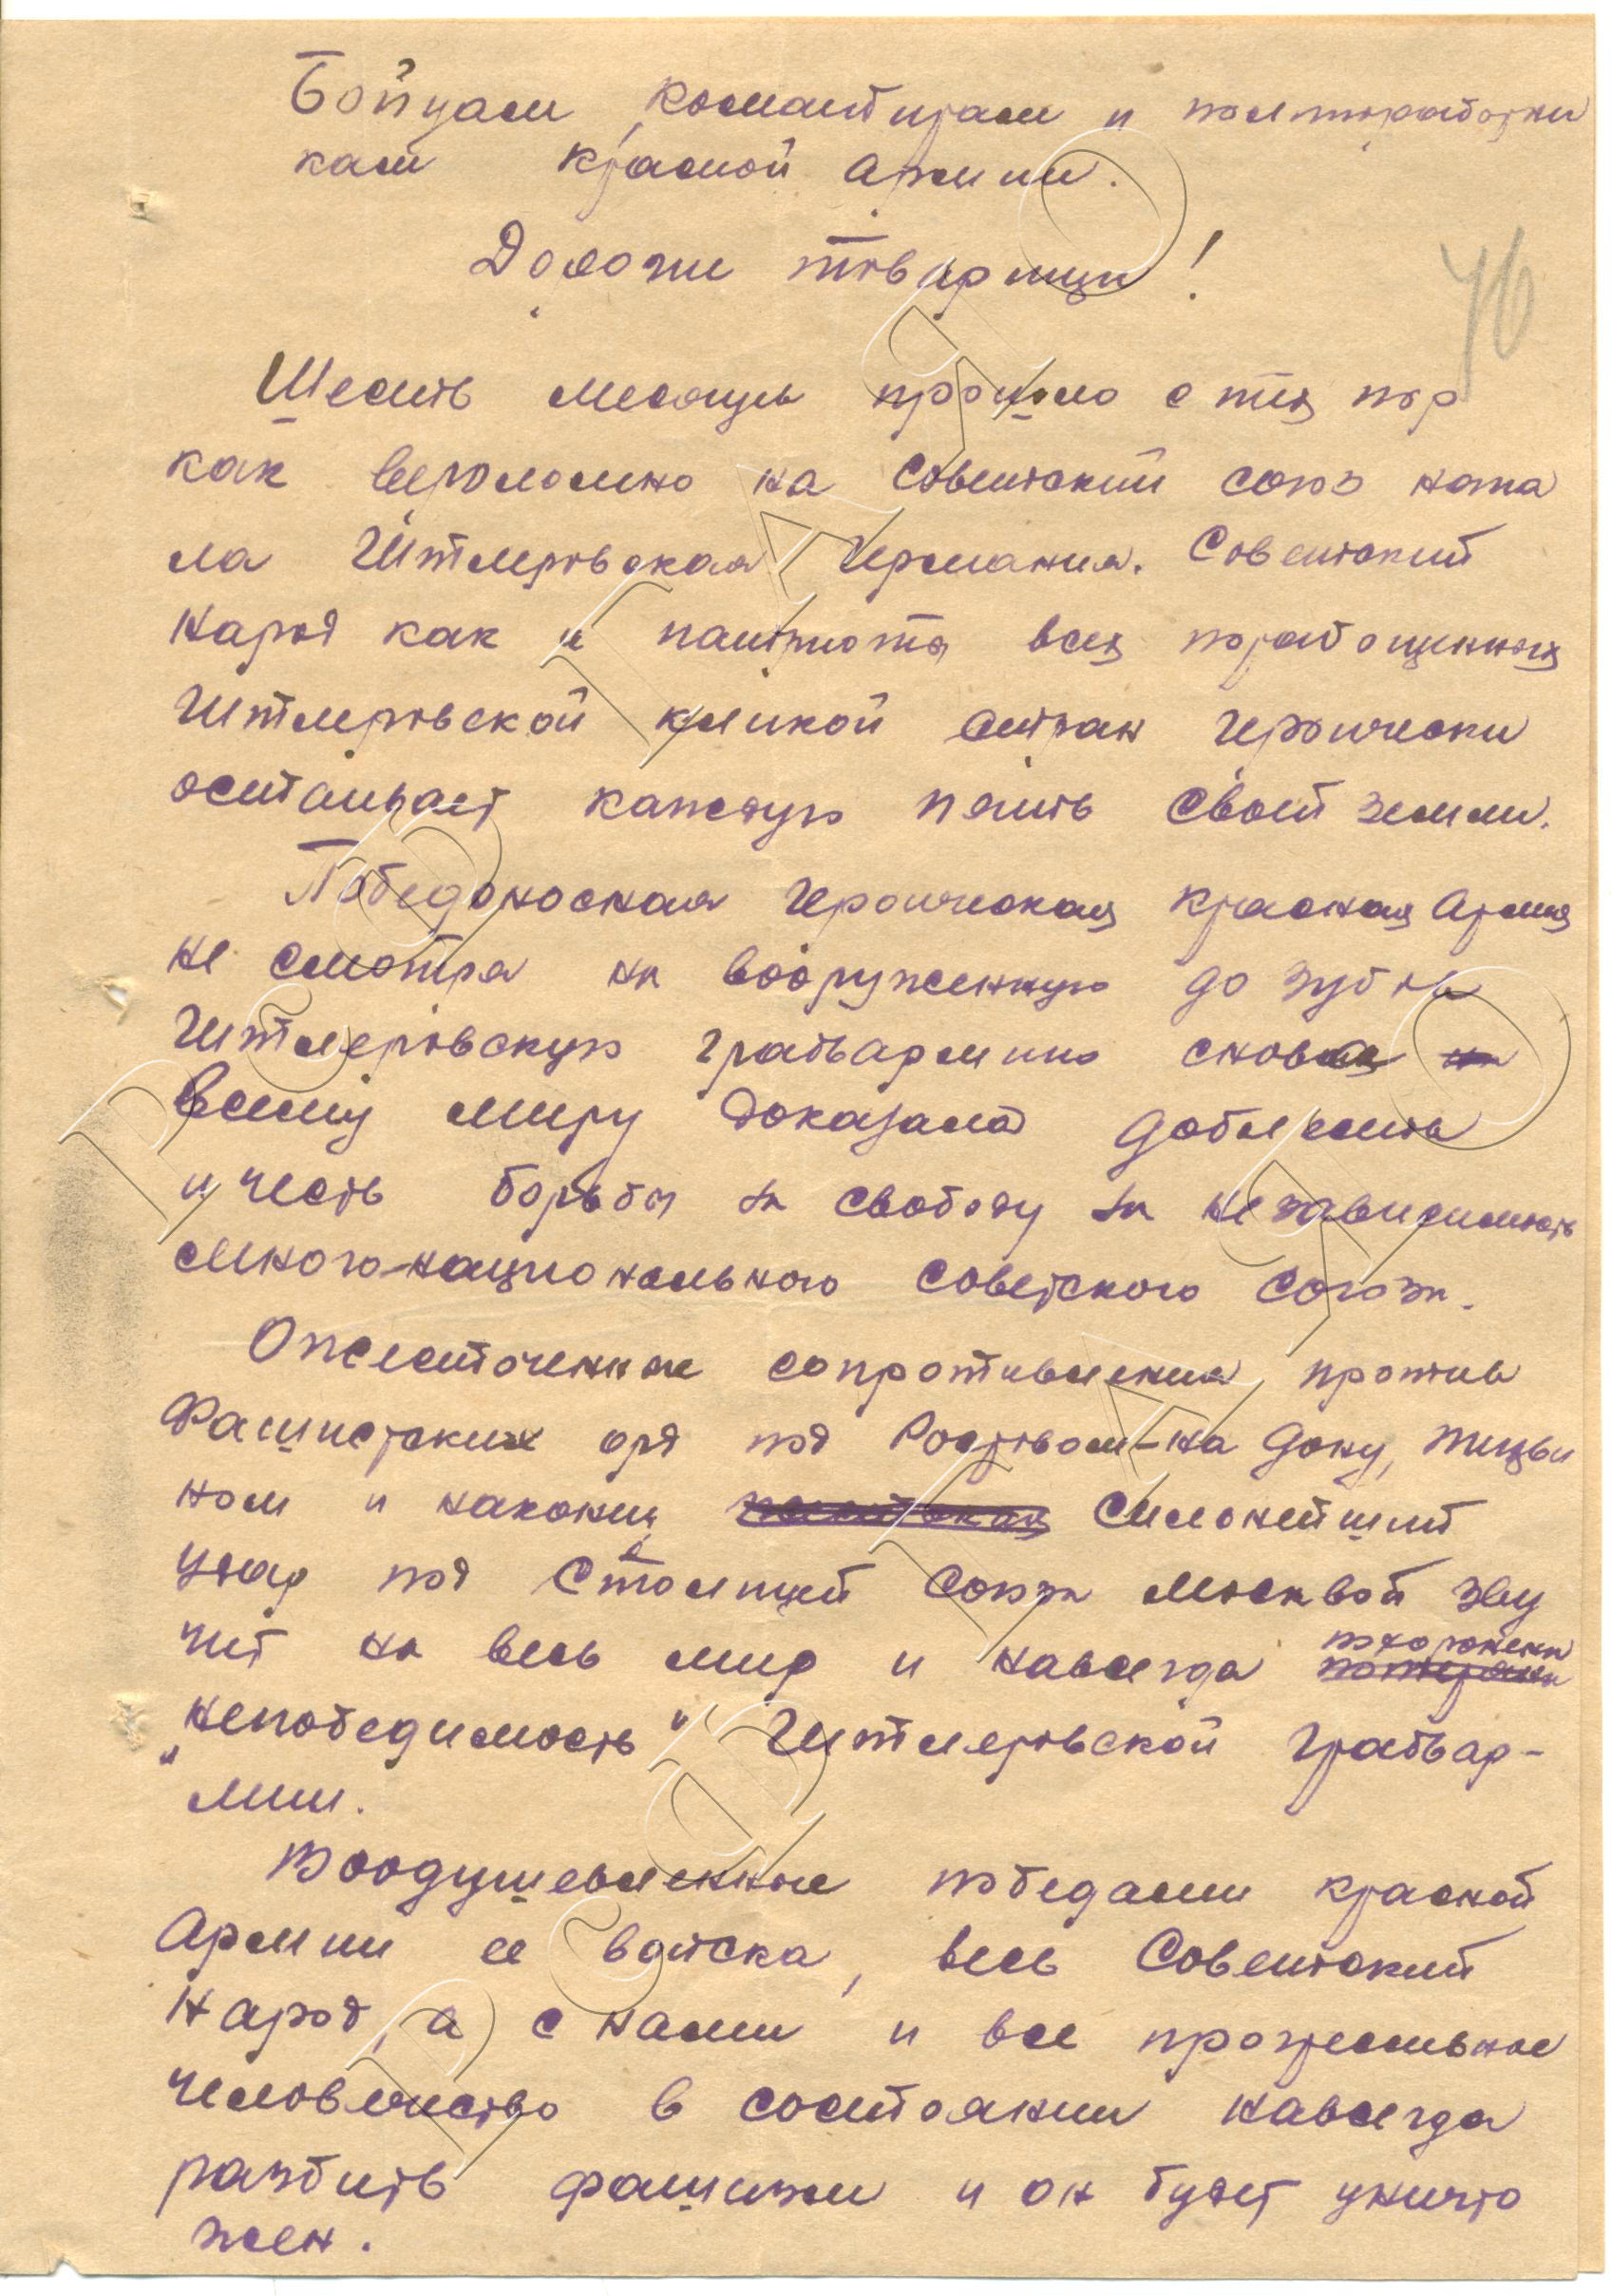 Бойцам, командирам и политработни
кам Красной Армии.
Дологи товарищи!
76
Шесть месяцы прошло с тех пор
как вероломно на Советский союз напа
ла Гитлеровская Германия. Советский
народ как и патриоты всех порабощенных
Гитлеровской кликой стран героически
оситаивает каждую пять своей земли.
Победоносная героическая красная Армия
не смотря на вооруженную до зубов
Гитлеровскую грабьармию снова на
всему миру доказала доблесть
и честь борьбы за свободу за независимость
многонационального советского союза.
Ожесточенные сопротивления против
Фашистских орд под Ростовом-на Дону, Тихви
ном и наконец сильнейший
удар под Столицей союза Москвой зву
чит на весь мир и навсегда похоронена
"непобедимость" Гитлеровской грабьар-
мии.
Воодушевленные победами красной
Армии ее войска, весь Советский
народ, а с нами и все прогресивное
человечество в состоянии навсегда
разбить фашизм и он будет уничто
жен.